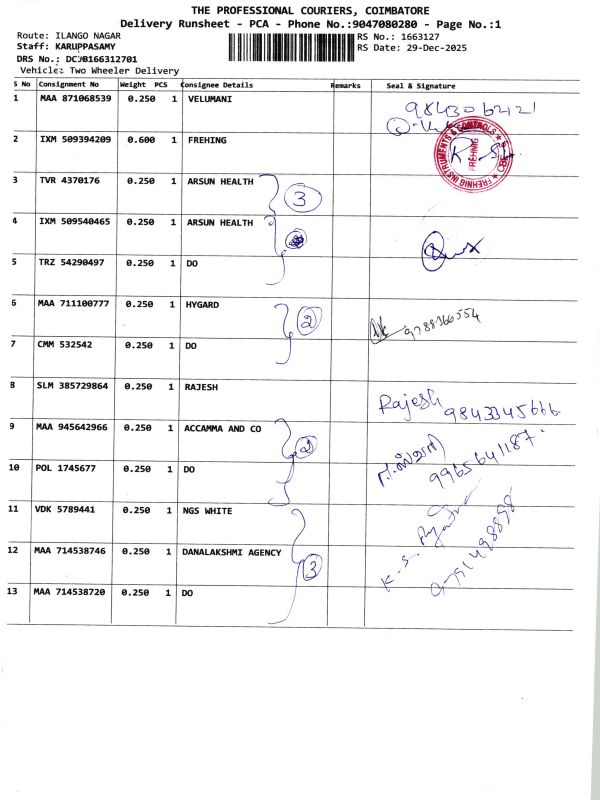 THE PROFESSIONAL COURIERS, COIMBATORE
Delivery Runsheet - PCA - Phone No.:9047080280 - Page No.:1
Route: ILANGO NAGAR RS No.: 1663127
Staff: KARUPPASAMY RS Date: 29-Dec-2025
DRS No.: DCJ0166312701
Vehicle: Two Wheeler Delivery
S No Consignment No Weight PCS Consignee Details Remarks Seal & Signature
1 MAA 871068539 0.250 1 VELUMANI
2 IXM 509394209 0.600 1 FREHING
FREHNIG INSTRUMENTS & CONTROLS CBE
3 TVR 4370176 0.250 1 ARSUN HEALTH 3
4 IXM 509540465 0.250 1 ARSUN HEALTH
5 TRZ 54290497 0.250 1 DO
6 MAA 711100777 0.250 1 HYGARD 2 9788366554
7 CMM 532542 0.250 1 DO
8 SLM 385729864 0.250 1 RAJESH Rajesh 9843345666
9 MAA 945642966 0.250 1 ACCAMMA AND CO 2 9965641187
10 POL 1745677 0.250 1 DO
11 VDK 5789441 0.250 1 NGS WHITE
12 MAA 714538746 0.250 1 DANALAKSHMI AGENCY 3 K.S.
13 MAA 714538720 0.250 1 DO